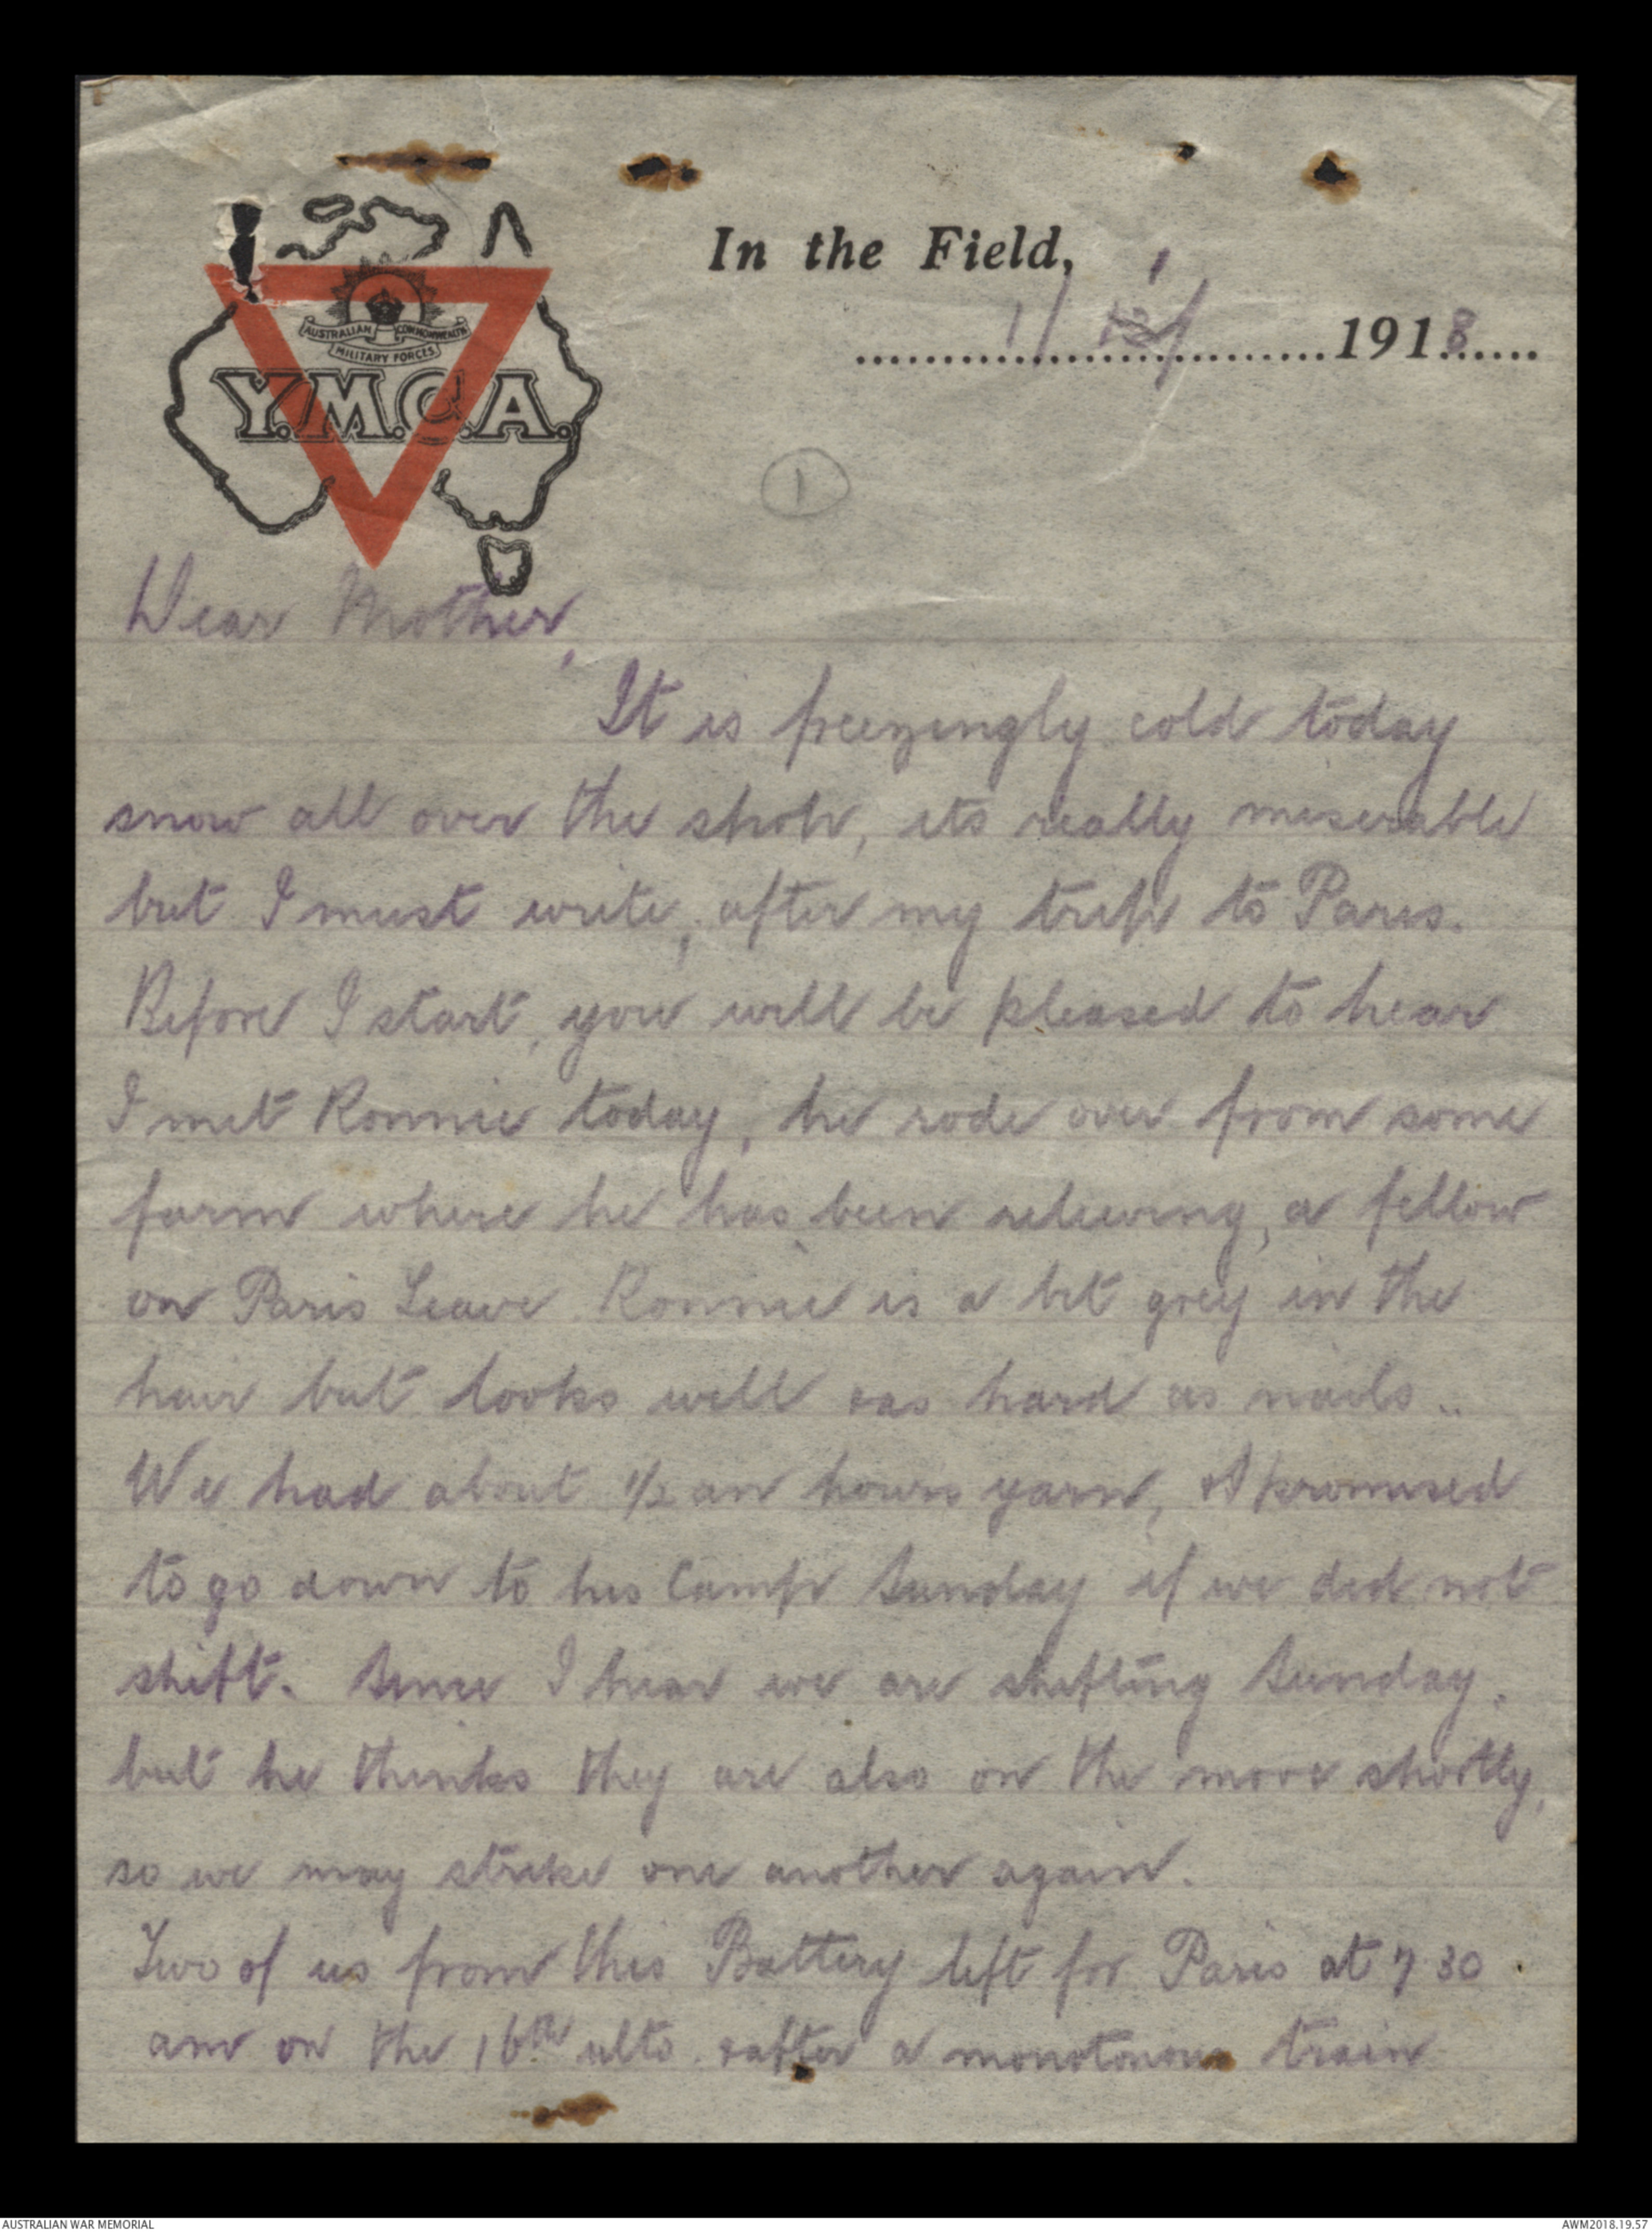 In the Field,
1/1/1918
AUSTRALIAN COMMONWEALTH
MILITARY FORCES
Y.M.C.A.
1
Dear Mother,
It is freezingly cold today
snow all over the shop, its really miserable
but I must write, after my trip to Paris.
Before I start, you will be pleased to hear
I met Ronnie today, he rode over from some
farm where he has been relieving, a fellow
on Paris Leave. Ronnie is a bit grey in the
hair but looks well & as hard as nails..
We had about 1/2 an hours yarn, & I promised
to go down to his Camp Sunday if we did not
shift. Since I hear we are shifting Sunday,
but he thinks they are also on the move shortly,
so we may strike one another again.
Two of us from this Battery left for Paris at 7 30
am on the 16th ulto. & after a monotonous train
AUSTRALIAN WAR MEMORIAL
AWM2018.19.57